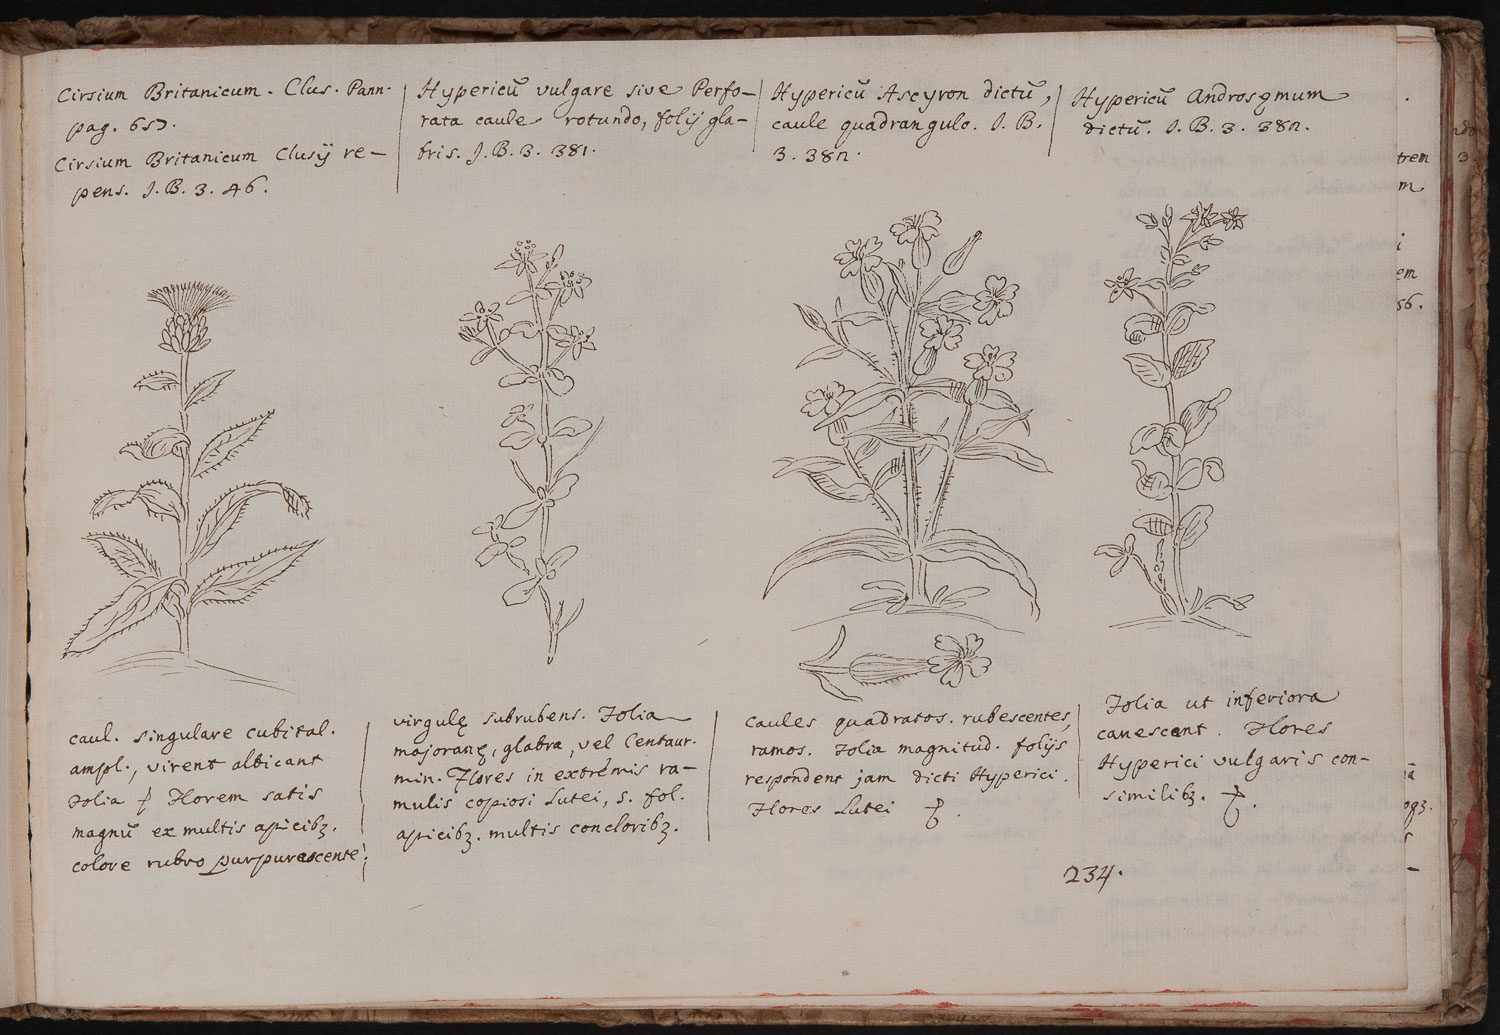 Cirsium Britanicum. Clus. Pann.
pag. 657.
Cirsium Britanicum Clusÿ re-
pens. J. B. 3. 46.
Hypericũ vulgare sive Perfo-
rata caule rotundo, folÿ gla-
bris. J. B. 3. 381.
Hypericũ Ascyron dictũ,
caule quadrangulo. J. B.
3. 382.
Hypericũ Androsæmum
dictũ. J. B. 3. 382.
caul. singulare cubital.
ampl., virent albicant
Folia Florem satis
magnũ ex multis apicibꝫ.
colore rubro purpurascente.
virgulę subrubens. Folia
majoranę, glabra, vel Centaur.
min. Flores in extrẽmis ra-
mulis copiosi Lutei, 5. fol.
apicibꝫ. multis concloribꝫ.
caules quadratos. rubescentes,
ramos. Folia magnitud. folijs
respondent jam dicti Hyperici.
Flores Lutei
Folia ut inferiora
canescent. Flores
Hyperici vulgaris con-
similibꝫ.
234.
trem
m
i
em
56.